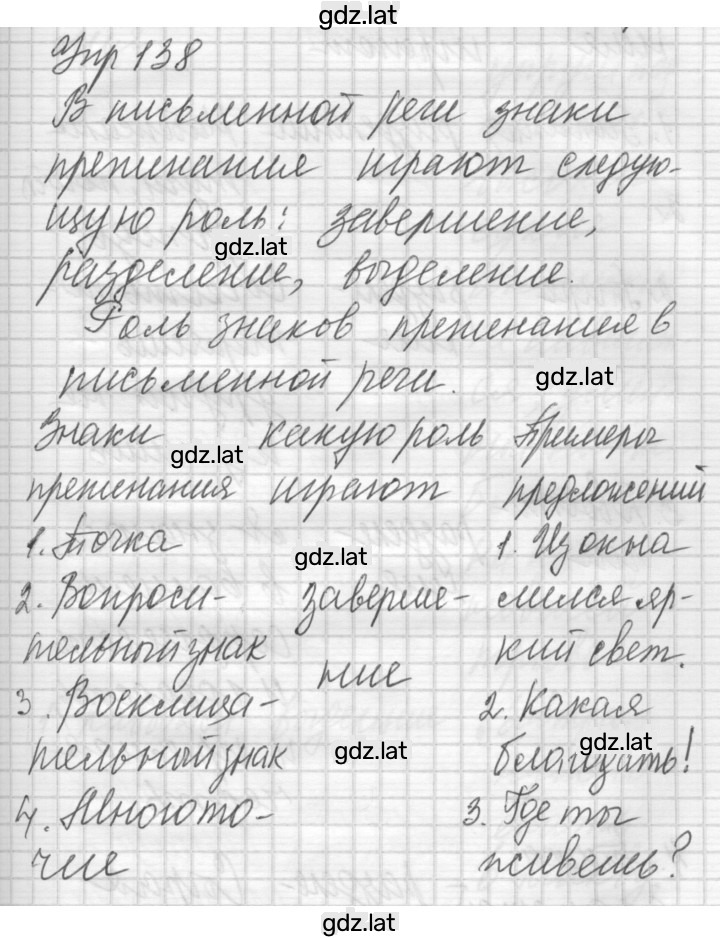 gdz.lat
Упр 138
В письменной речи знаки
препинания играют следую-
щую роль: завершение,
gdz.lat
разделение, выделение.
Роль знаков препинания в
письменной речи.
gdz.lat
Знаки какую роль Примеры
gdz.lat
препинания играют предложений
1. Точка 1. Из окна
gdz.lat
2. Вопроси- заверше- лился яр-
тельный знак ние кий свет.
3. Восклица- 2. Какая
тельный знак gdz.lat благодать!
gdz.lat
4. Многото- 3. Где ты
чие живешь?
gdz.lat